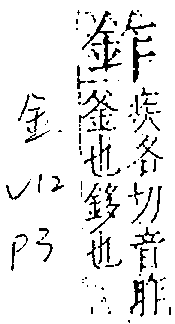 鈼
疾各切音昨
釜也鉹也
金
V12
P3